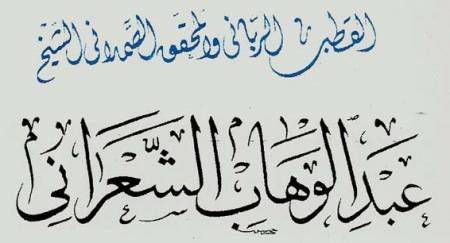 القطب الرباني والمحقق الصمداني الشيخ
عبد الوهاب الشعراني